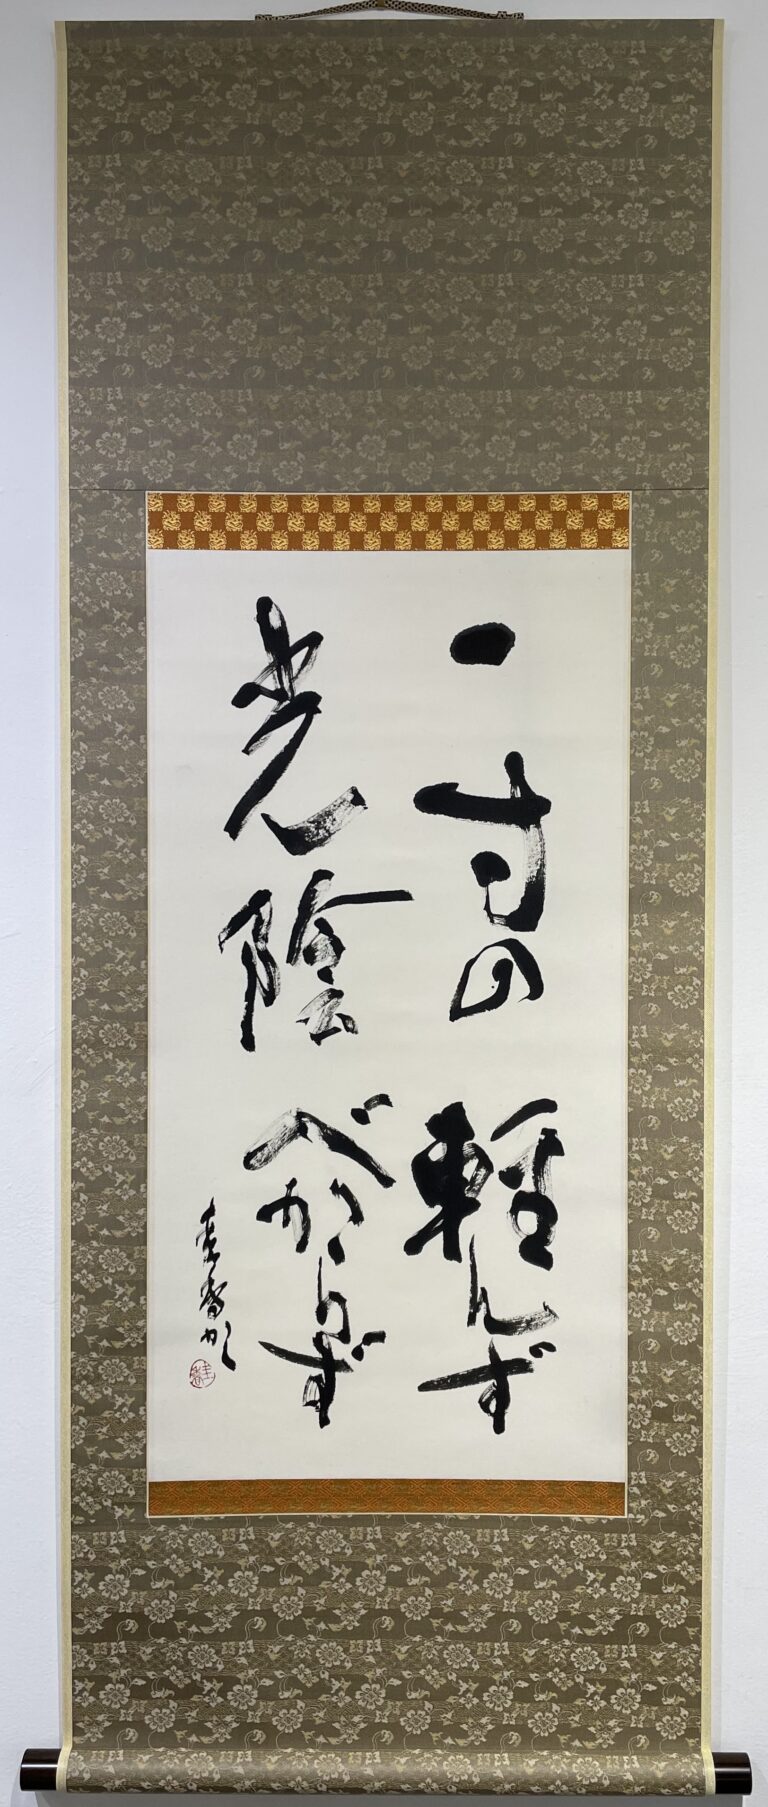 一寸の
光陰
軽んず
べからず